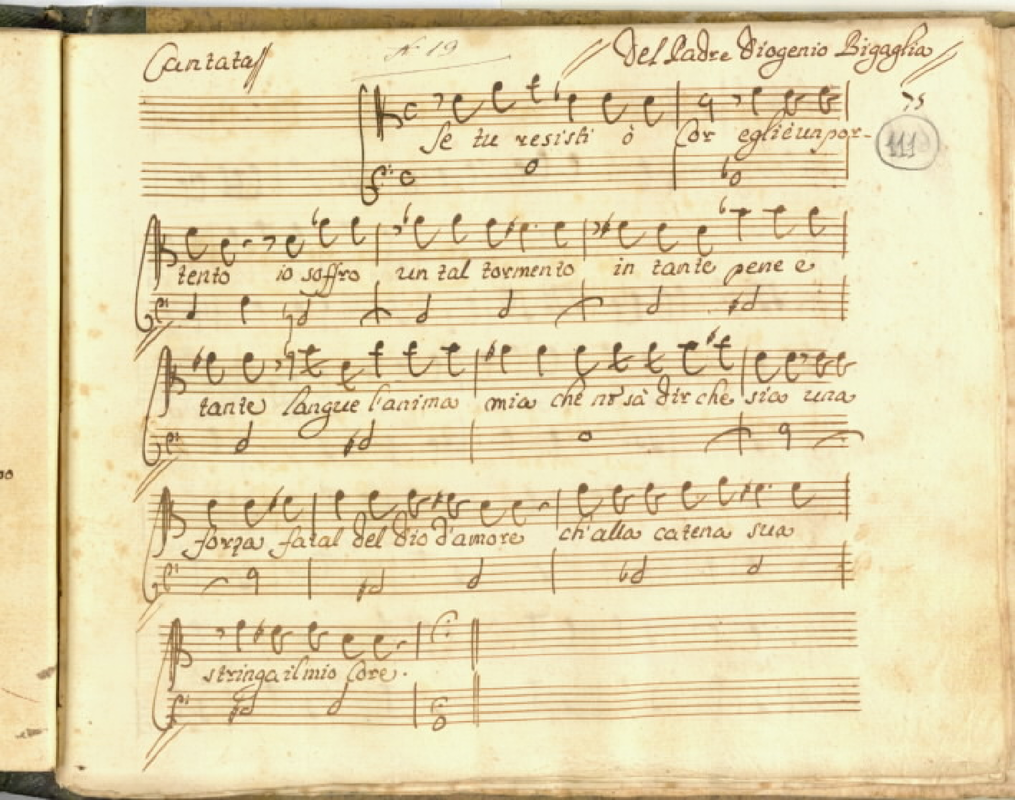 Cantata
N. 19
Del Padre Diogenio Bigaglia
75
111
Se tu resisti ò Cor egli è un por-
tento io soffro un tal tormento in tante pene e
tante langue l'anima mia che nõ sà dir che sia una
forza fatal del Dio d'amore ch'alla catena sua
stringa il mio Core.